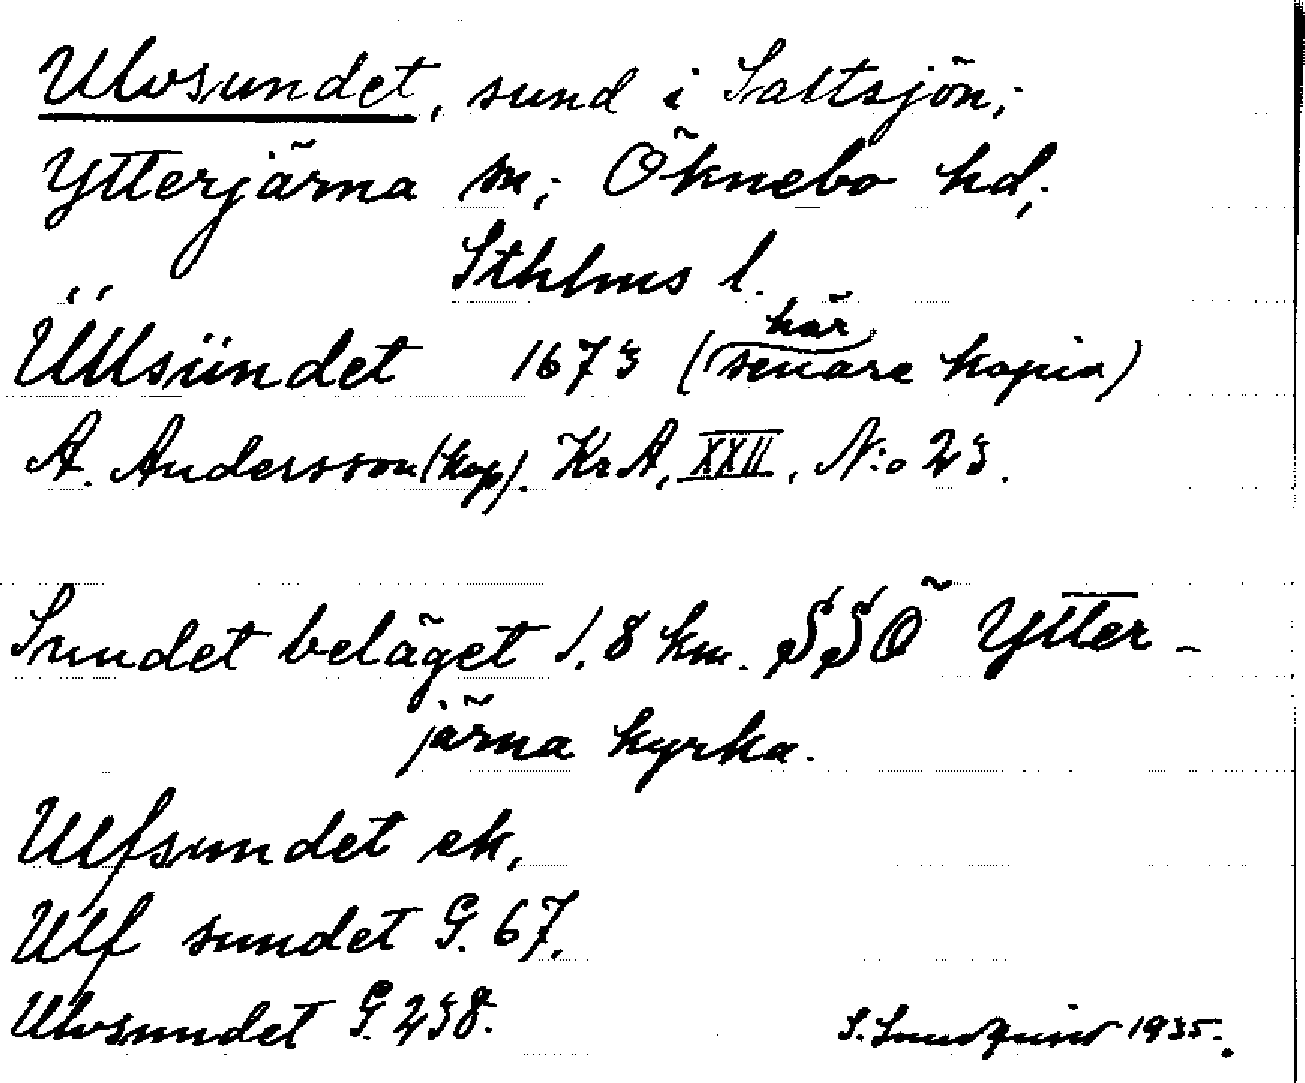 Ulvsundet, sund i Saltsjön;
Ytterjärna sn; Öknebo hd;
Sthlms l.
Üllsündet 1673 (här senare kopia)
A. Andersson (kop). KrA, XXII, N:o 23.
Sundet beläget 1.8 km. SSÖ Ytter-
järna kyrka.
Ulfsundet ek,
Ulf sundet G. 67.
Ulvsundet G. 238.
S. Lundqvist 1935.